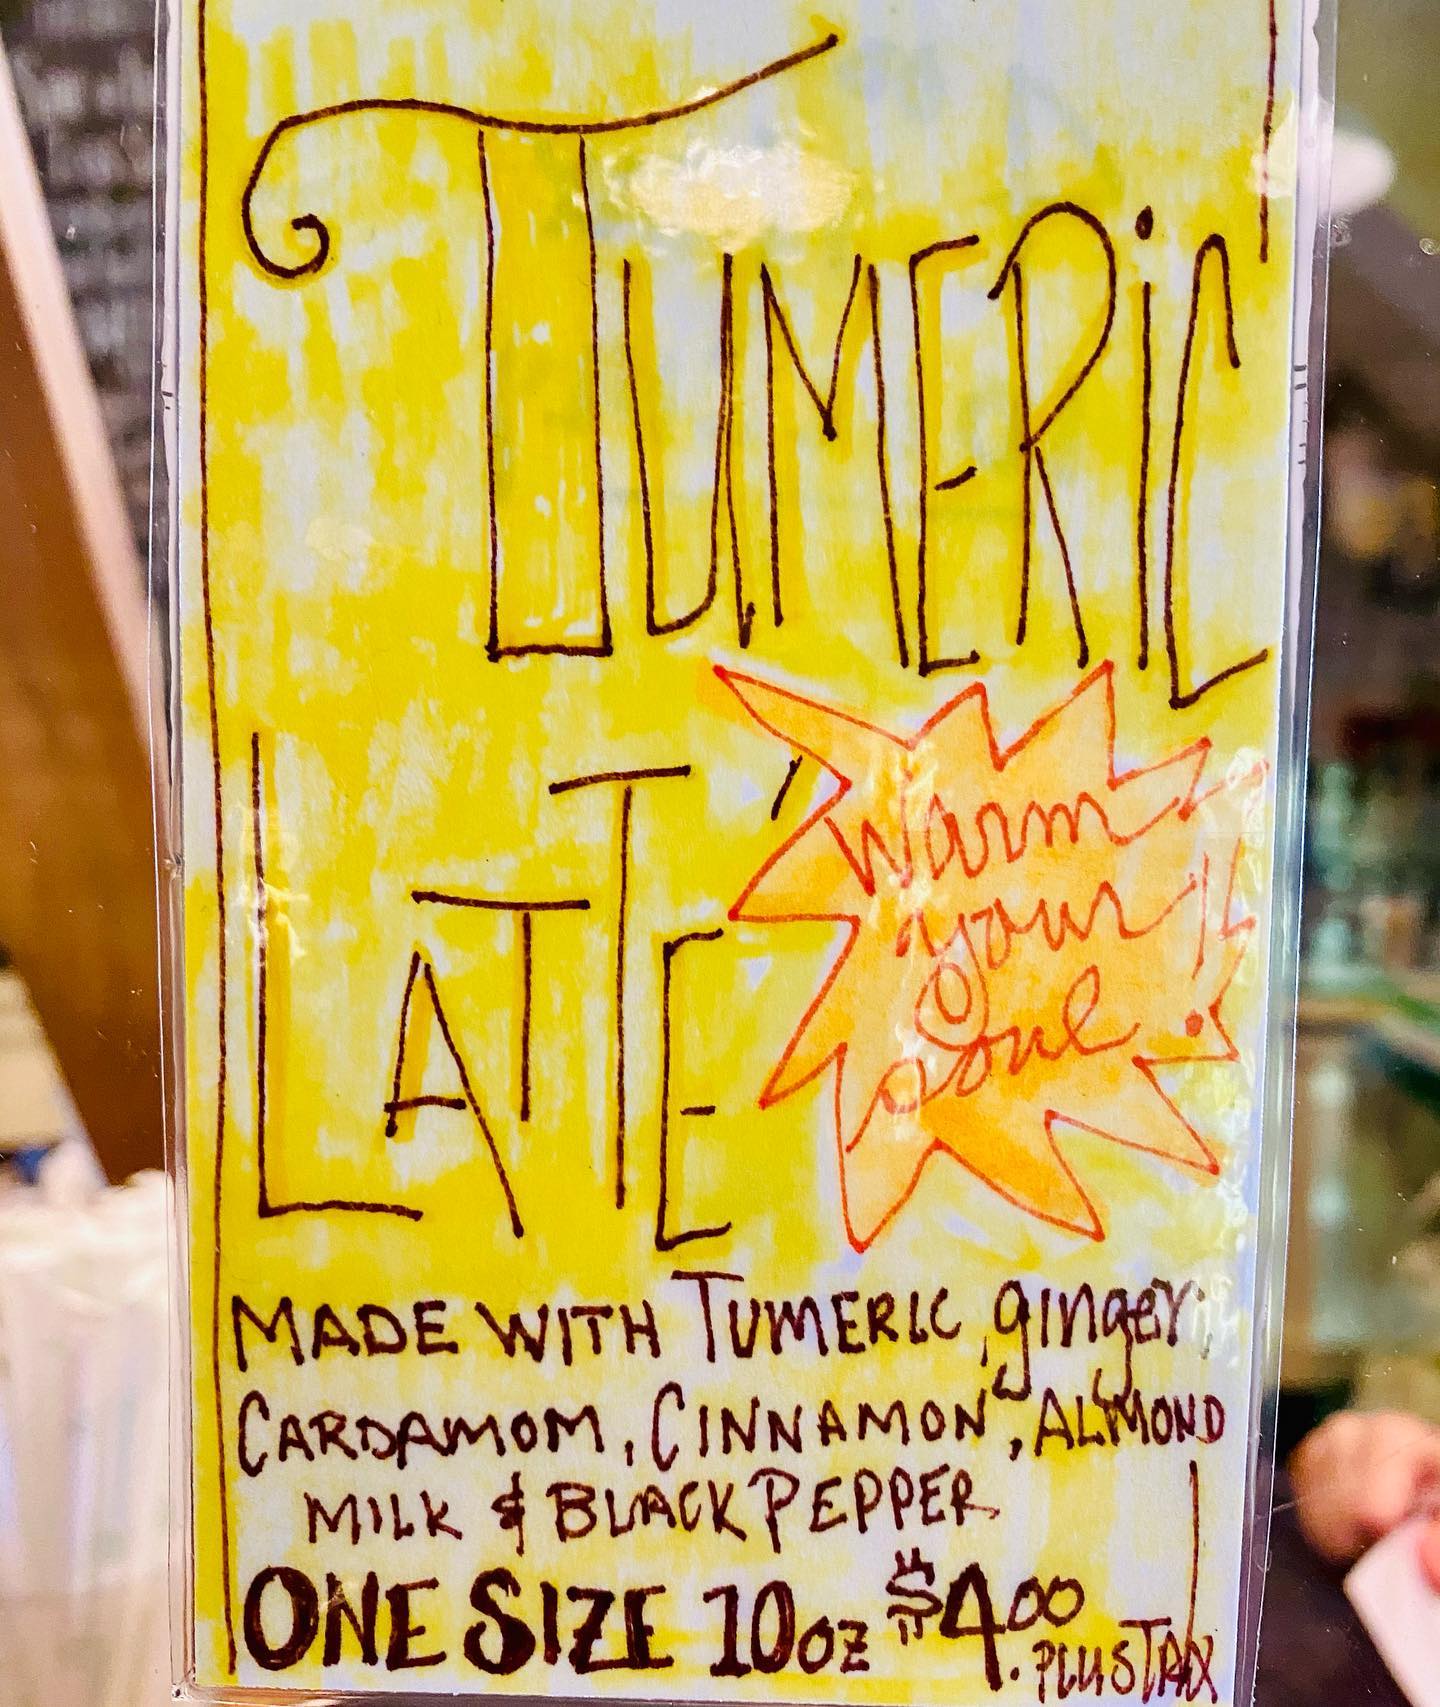 TUMERiC
LATTÉ
Warm
your
Soul!
MADE WITH TUMERIC, ginger,
CARDAMOM, CINNAMON, ALMOND
MILK & BLACK PEPPER
ONE SIZE 10oz $4.00
PLUS TAX